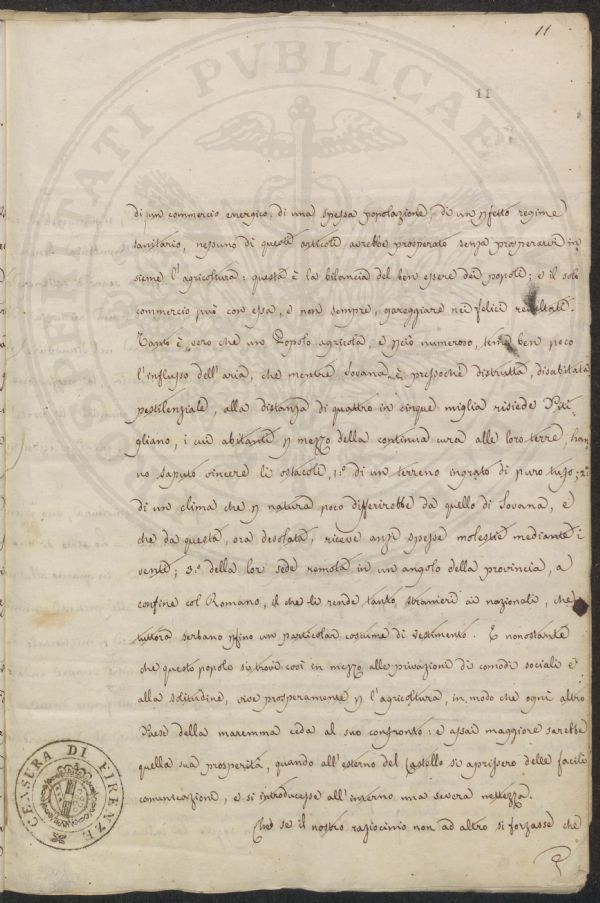 11
11
di un commercio energico, di una spessa popolazione, di un pfetto regime
sanitario, nessuno di questi articoli avrebbe prosperato senza prosperarvi in-
sieme l'agricoltura: questa è la bilancia del ben essere dei popoli; e il solo
commercio può con essa, e non sempre, gareggiare nei felici resultati.
Tanto è vero che un Popolo agricola, e pciò numeroso, teme ben poco
l'influsso dell'aria, che mentre Sovana è pressoché distrutta, disabitata
pestilenziale, alla distanza di quattro in cinque miglia risiede Piti-
gliano, i cui abitanti p mezzo della continua cura alle loro terre, han-
no saputo vincere li ostacoli, 1.° di un terreno ingrato di puro tufo; 2.°
di un clima che p natura poco differirebbe da quello di Sovana, e
che da questa, ora desolata, riceve anzi spesse molestie mediante i
venti; 3.° della lor sede remota in un angolo della provincia, a
confine col Romano, il che li rende tanto stranieri ai nazionali, che
tuttora serbano pfino un particolar costume di vestimento. E nonostante
che questo popolo si trovi così in mezzo alle privazioni di comodi sociali e
alla solitudine, vive prosperamente p l'agricoltura, in modo che ogni altro
Paese della maremma ceda al suo confronto: e assai maggiore sarebbe
quella sua prosperità, quando all'esterno del Castello si aprissero delle facili
comunicazioni, e si introducesse all'interno una severa nettezza.
Che se il nostro raziocinio non ad altro si forzasse che
CENSURA DI FIRENZE
OSPERITATI PVBLICAE